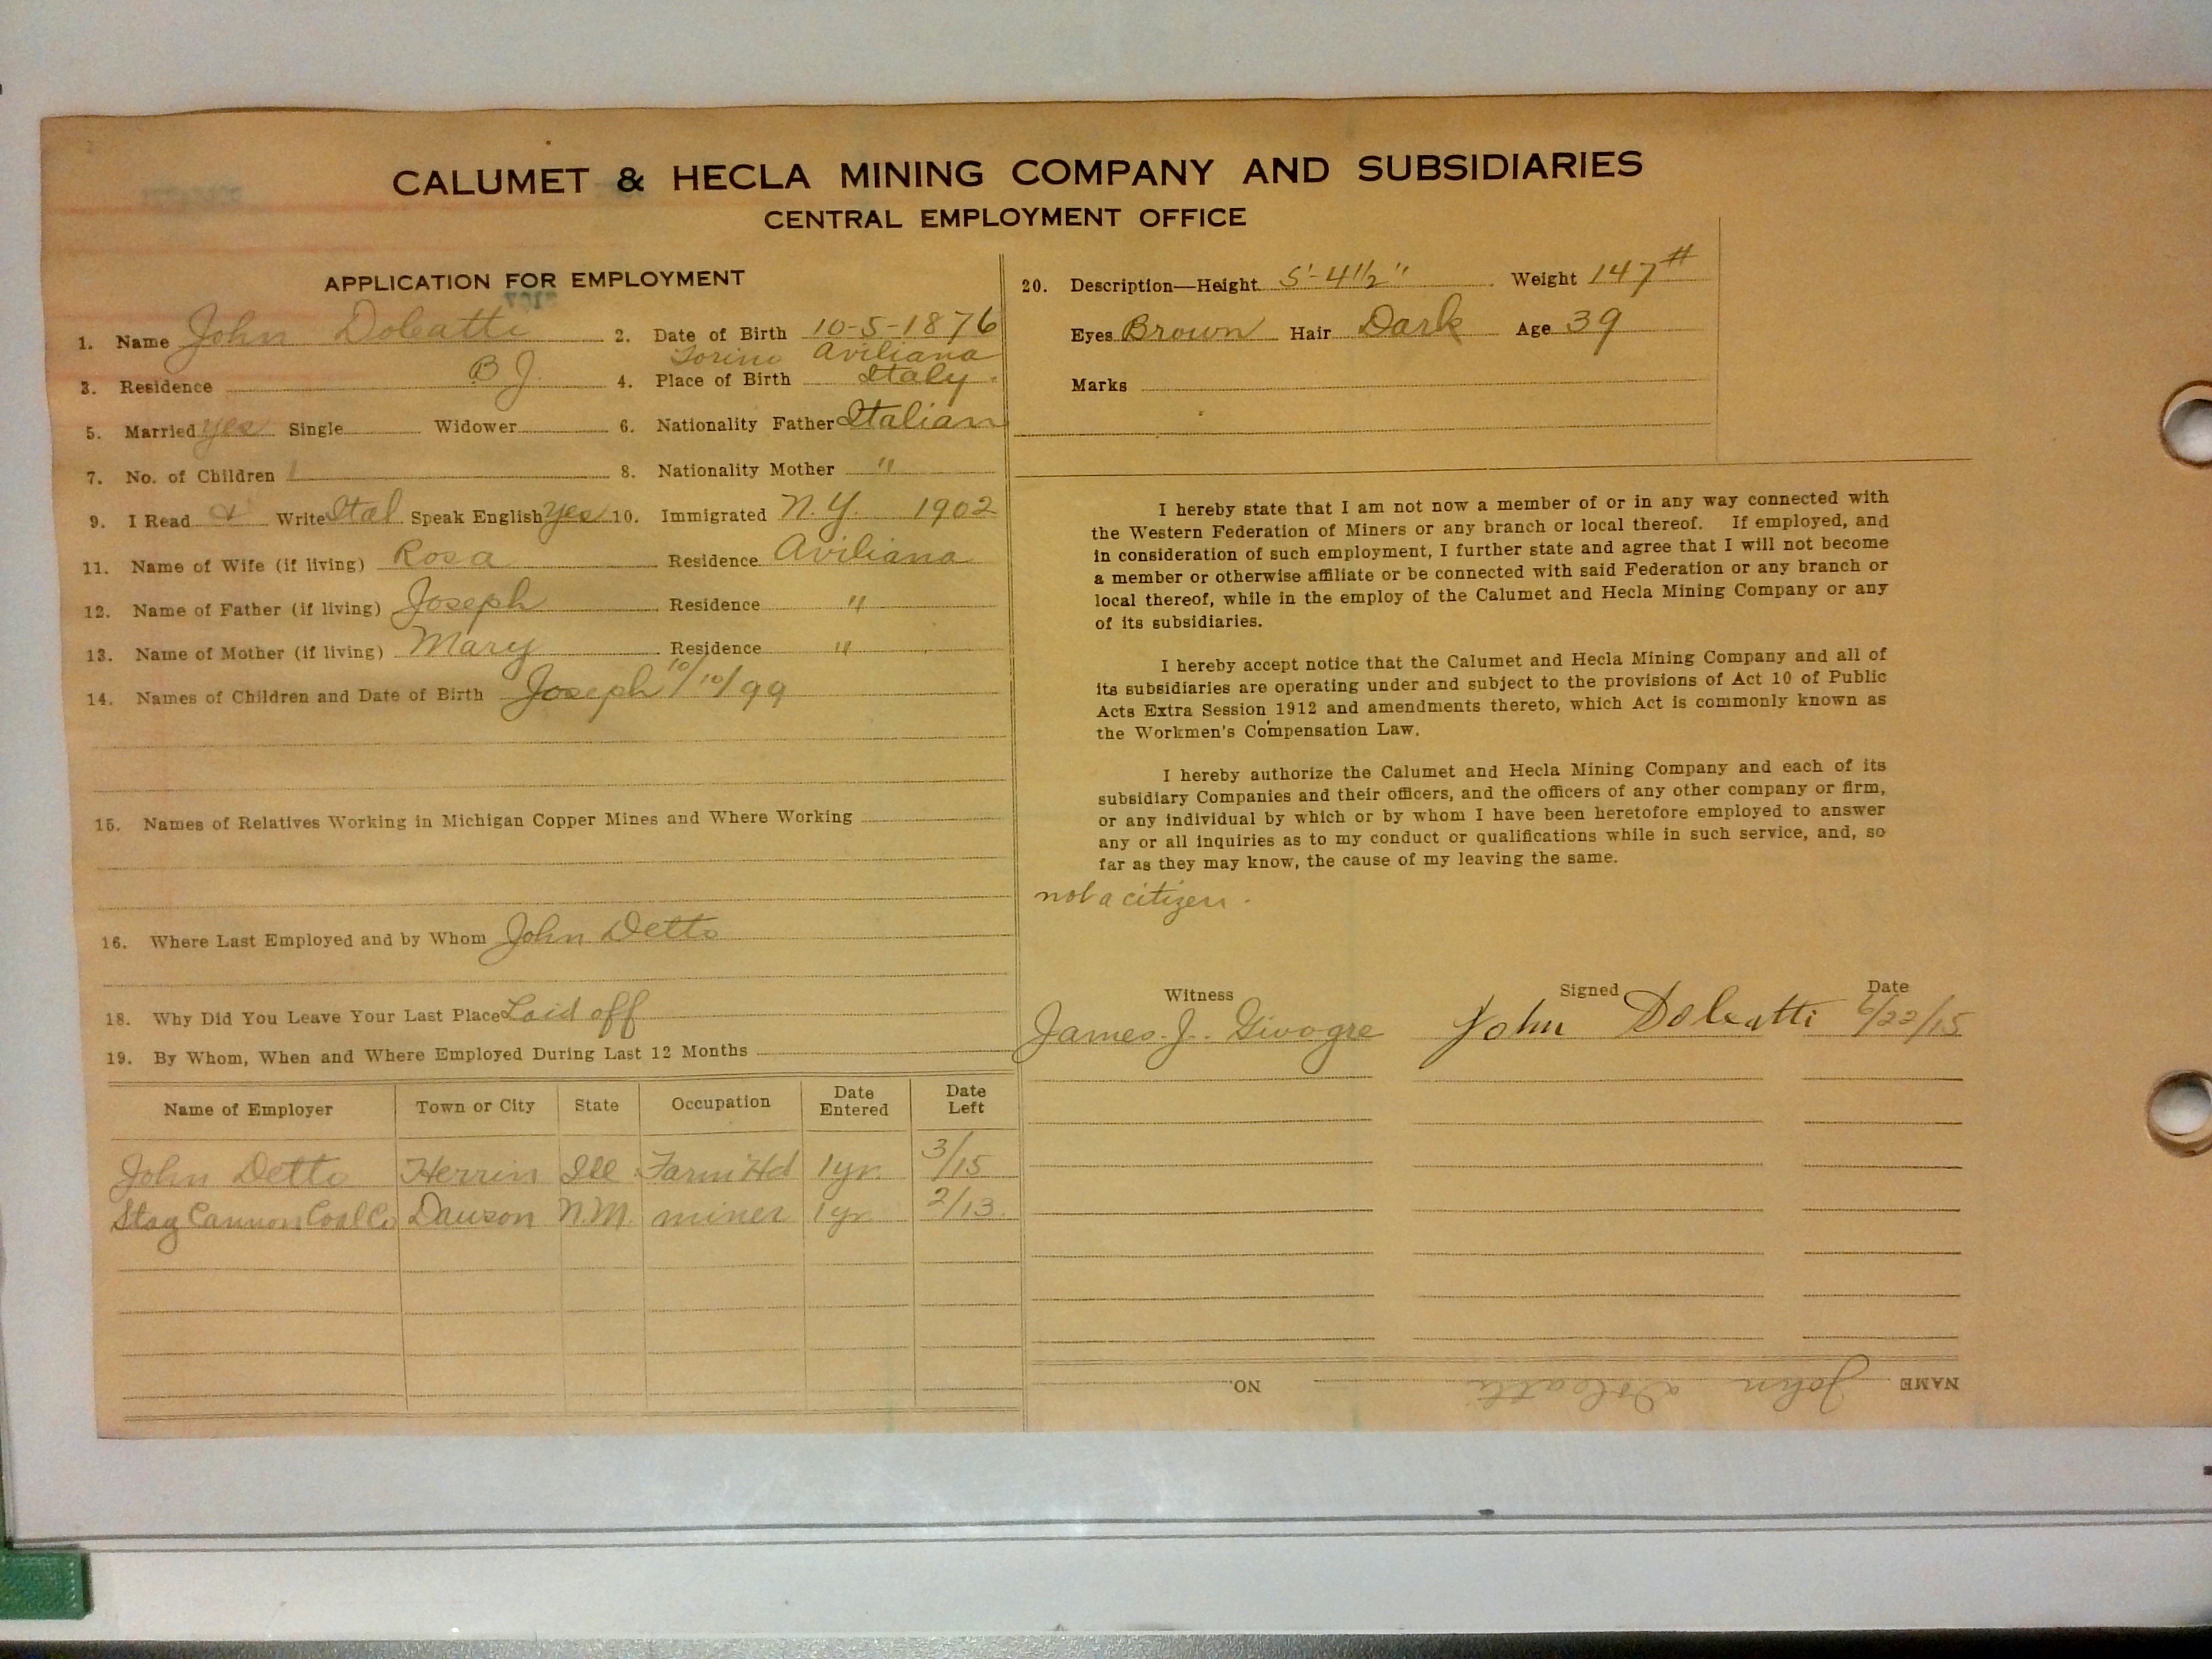 CALUMET & HECLA MINING COMPANY AND SUBSIDIARIES
CENTRAL EMPLOYMENT OFFICE
APPLICATION FOR EMPLOYMENT
1. Name John Doleatti 2. Date of Birth 10-5-1876
Torino Aviliana
3. Residence B J. 4. Place of Birth Italy.
5. Married yes Single Widower 6. Nationality Father Italian
7. No. of Children 1 8. Nationality Mother "
9. I Read & Write Ital Speak English yes 10. Immigrated N.Y. 1902
11. Name of Wife (if living) Rosa Residence Aviliana
12. Name of Father (if living) Joseph Residence "
13. Name of Mother (if living) Mary Residence "
14. Names of Children and Date of Birth Joseph 10/10/99
15. Names of Relatives Working in Michigan Copper Mines and Where Working
16. Where Last Employed and by Whom John Detto
18. Why Did You Leave Your Last Place Laid off
19. By Whom, When and Where Employed During Last 12 Months
Name of Employer Town or City State Occupation Date Entered Date Left
John Detto Herrin Ill Farm Hd 1 yr. 3/15
Stag Cannon Coal Co Dawson N.M. miner 1 yr. 2/13.
20. Description—Height 5'-4 1/2" Weight 147#
Eyes Brown Hair Dark Age 39
Marks
I hereby state that I am not now a member of or in any way connected with
the Western Federation of Miners or any branch or local thereof. If employed, and
in consideration of such employment, I further state and agree that I will not become
a member or otherwise affiliate or be connected with said Federation or any branch or
local thereof, while in the employ of the Calumet and Hecla Mining Company or any
of its subsidiaries.
I hereby accept notice that the Calumet and Hecla Mining Company and all of
its subsidiaries are operating under and subject to the provisions of Act 10 of Public
Acts Extra Session 1912 and amendments thereto, which Act is commonly known as
the Workmen's Compensation Law.
I hereby authorize the Calumet and Hecla Mining Company and each of its
subsidiary Companies and their officers, and the officers of any other company or firm,
or any individual by which or by whom I have been heretofore employed to answer
any or all inquiries as to my conduct or qualifications while in such service, and, so
far as they may know, the cause of my leaving the same.
not a citizen.
Witness Signed Date
James J. Givogre John Doleatti 6/22/15
NAME John Doleatti NO.